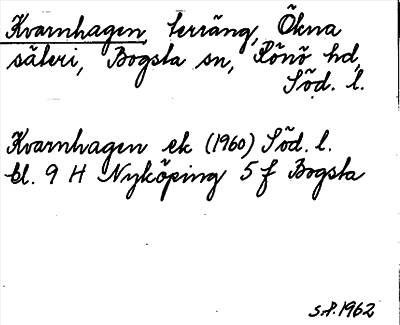 Kvarnhagen, terräng, Ökna
säteri, Bogsta sn, Rönö hd,
Söd. l.
Kvarnhagen ek (1960) Söd. l.
bl. 9 H Nyköping 5 f Bogsta
S.P. 1962